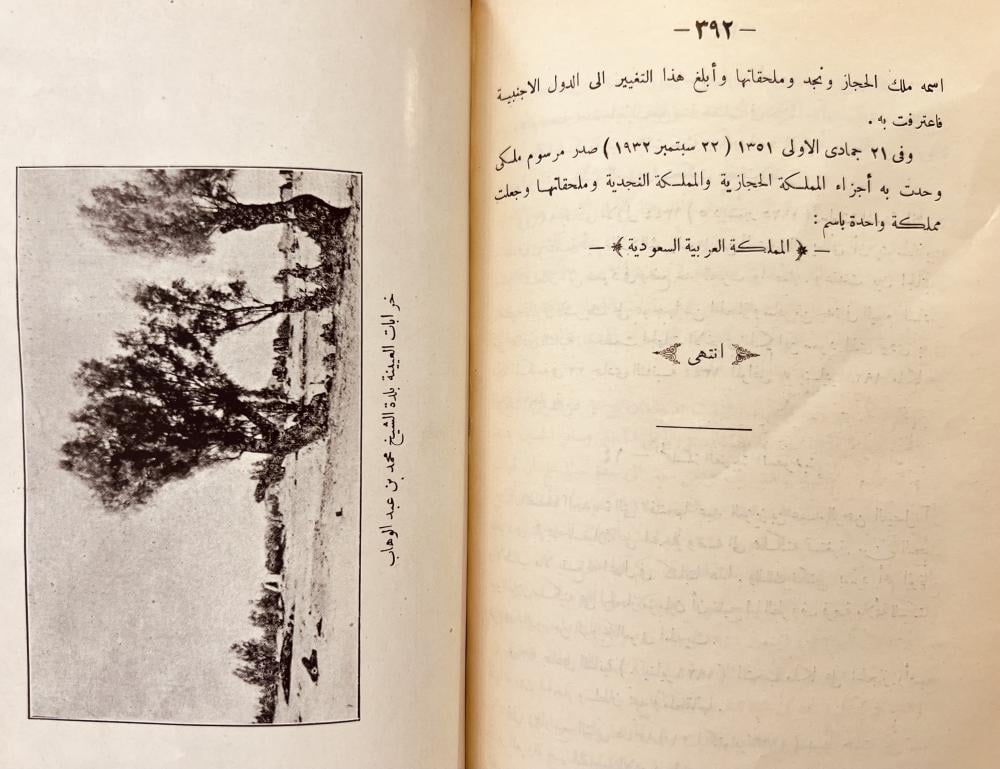 — ٣٩٢ —
اسمه ملك الحجاز ونجد وملحقاتها وأبلغ هذا التغيير الى الدول الاجنبية
فاعترفت به .
وفى ٢١ جمادى الاولى ١٣٥١ ( ٢٢ سبتمبر ١٩٣٢ ) صدر مرسوم ملكى
وحدت به أجزاء المملكة الحجازية والمملكة النجدية وملحقاتهما وجعلت
مملكة واحدة باسم :
— ﴿ المملكة العربية السعودية ﴾ —
انتهى
خرابات العيينة بلدة الشيخ محمد بن عبد الوهاب